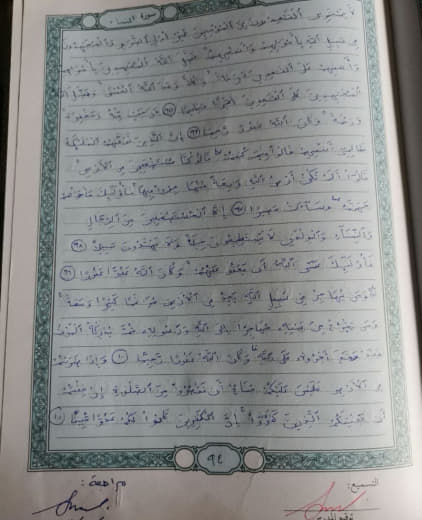 سورة النساء
لا يستوى القعدون من المؤمنين غير أولى الضرر والمجهدون
فى سبيل الله بأمولهم وأنفسهم فضل الله المجهدين بأمولهم
وأنفسهم على القعدين درجة وكلا وعد الله الحسنى وفضل الله
المجهدين على القعدين أجرا عظيما ٩٥ درجت منه ومغفرة
ورحمة وكان الله غفورا رحيما ٩٦ إن الذين توفهم الملئكة
ظالمى أنفسهم قالوا فيم كنتم قالوا كنا مستضعفين فى الأرض
قالوا ألم تكن أرض الله وسعة فتهاجروا فيها فأولئك مأوهم
جهنم وساءت مصيرا ٩٧ إلا المستضعفين من الرجال
والنساء والولدن لا يستطيعون حيلة ولا يهتدون سبيلا ٩٨
فأولئك عسى الله أن يعفو عنهم وكان الله عفوا غفورا ٩٩
ومن يهاجر فى سبيل الله يجد فى الأرض مرغما كثيرا وسعة
ومن يخرج من بيته مهاجرا إلى الله ورسوله ثم يدركه الموت
فقد وقع أجره على الله وكان الله غفورا رحيما ١٠٠ وإذا ضربتم
فى الأرض فليس عليكم جناح أن تقصروا من الصلوة إن خفتم
أن يفتنكم الذين كفروا إن الكفرين كانوا لكم عدوا مبينا ١٠١
٩٤
التسميع:
مراجعة: